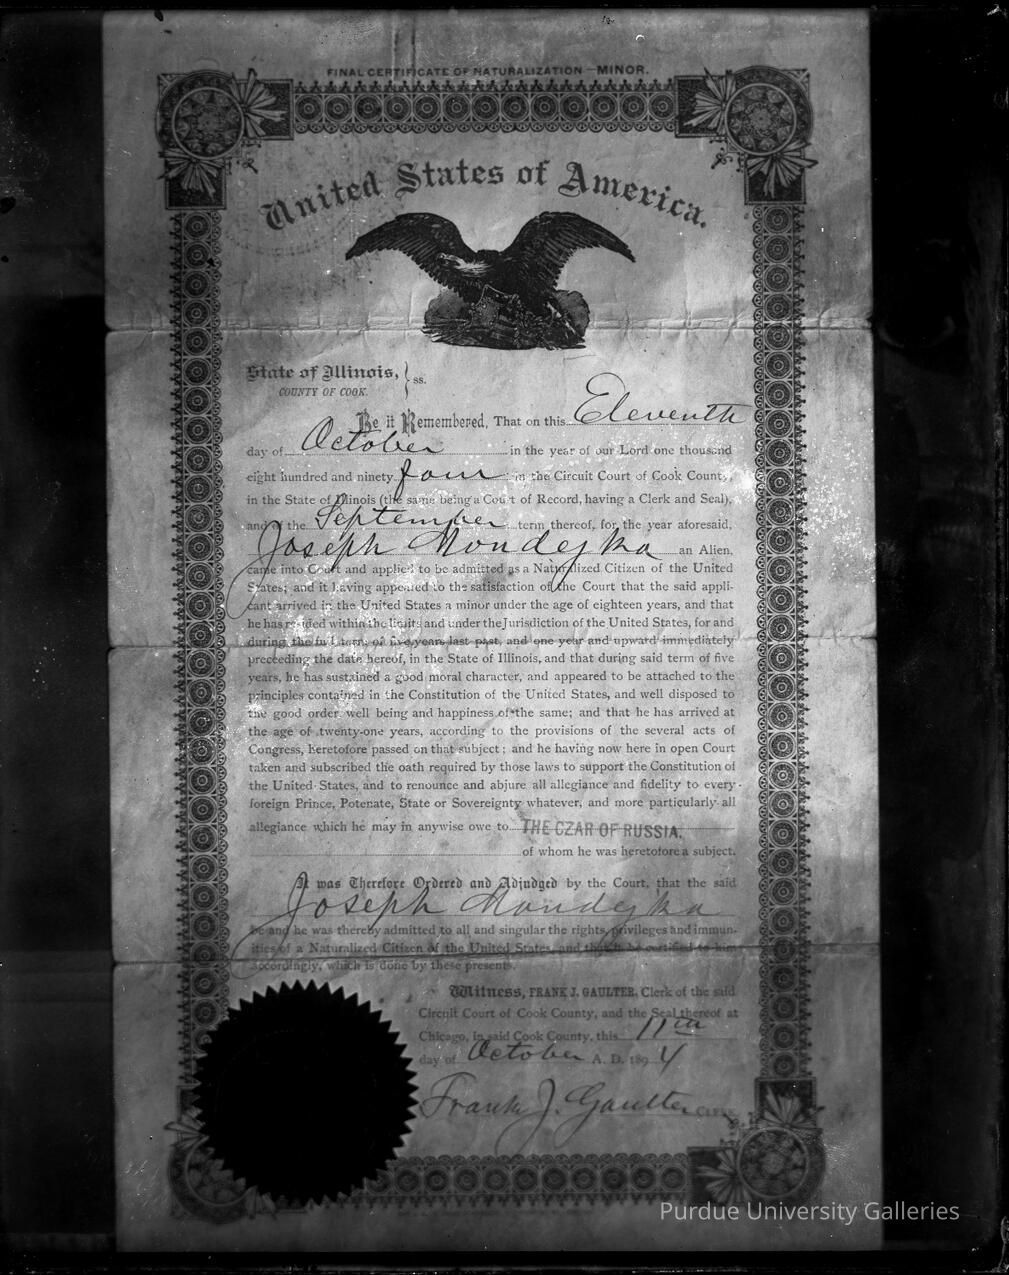 FINAL CERTIFICATE OF NATURALIZATION—MINOR.
United States of America.
State of Illinois, } ss.
COUNTY OF COOK.
Be it Remembered, That on this Eleventh
day of October in the year of our Lord one thousand
eight hundred and ninety four in the Circuit Court of Cook County,
in the State of Illinois (the same being a Court of Record, having a Clerk and Seal),
and of the September term thereof, for the year aforesaid,
Joseph an Alien,
came into Court and applied to be admitted as a Naturalized Citizen of the United
States; and it having appeared to the satisfaction of the Court that the said appli-
cant arrived in the United States a minor under the age of eighteen years, and that
he has resided within the limits and under the Jurisdiction of the United States, for and
during the full term of five years last past, and one year and upward immediately
preceeding the date hereof, in the State of Illinois, and that during said term of five
years, he has sustained a good moral character, and appeared to be attached to the
principles contained in the Constitution of the United States, and well disposed to
the good order well being and happiness of the same; and that he has arrived at
the age of twenty-one years, according to the provisions of the several acts of
Congress, heretofore passed on that subject; and he having now here in open Court
taken and subscribed the oath required by those laws to support the Constitution of
the United States, and to renounce and abjure all allegiance and fidelity to every
foreign Prince, Potenate, State or Sovereignty whatever, and more particularly all
allegiance which he may in anywise owe to THE CZAR OF RUSSIA.
of whom he was heretofore a subject.
It was Therefore Ordered and Adjudged by the Court, that the said
Joseph
be and he was thereby admitted to all and singular the rights, privileges and immun-
ities of a Naturalized Citizen of the United States, and that it be certified to him
accordingly, which is done by these presents.
Witness, FRANK J. GAULTER, Clerk of the said
Circuit Court of Cook County, and the Seal thereof at
Chicago, in said Cook County, this 11th
day of October A. D. 1894
Frank J. Gaulter CLERK.
Purdue University Galleries